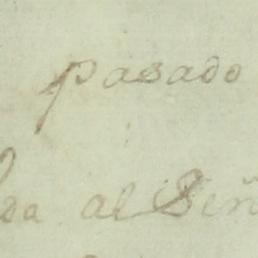 pasado
da al Señ